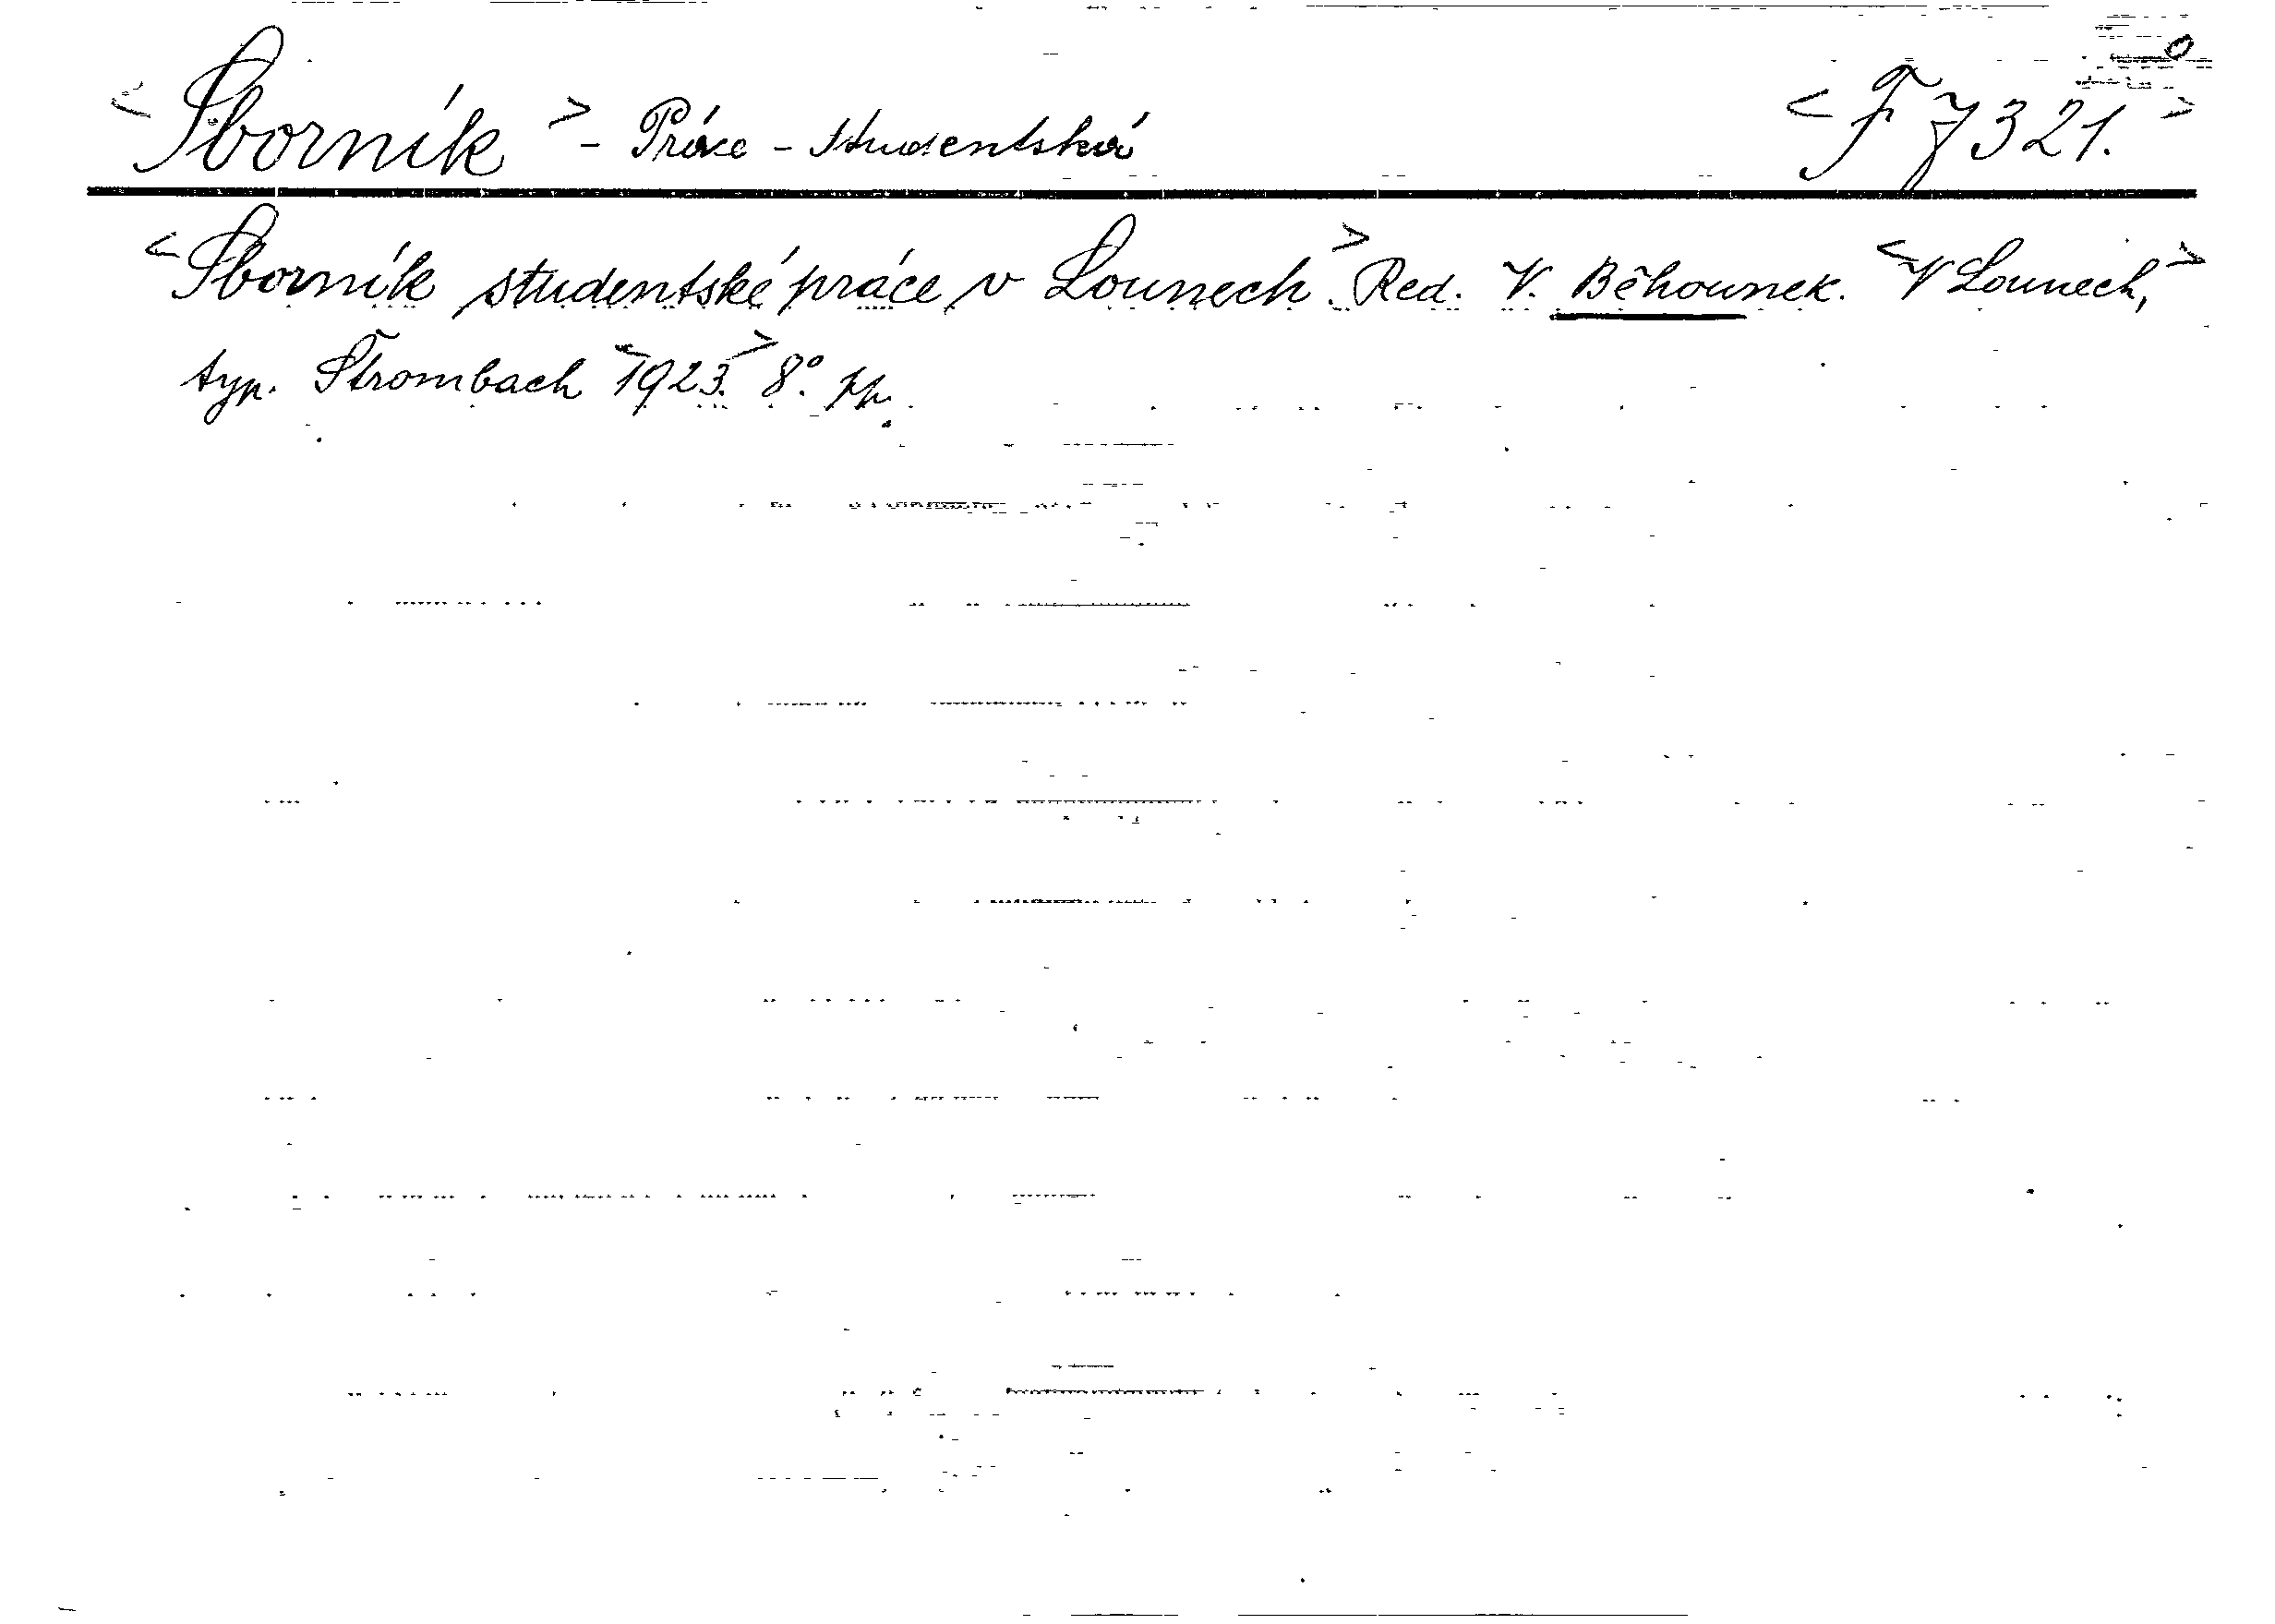 <Sborník> - Práce - studentská <F 7321.>
<Sborník studentské práce v Lounech.> Red. V. Běhounek. <V Lounech,>
typ. Strombach <1923.> 8°.